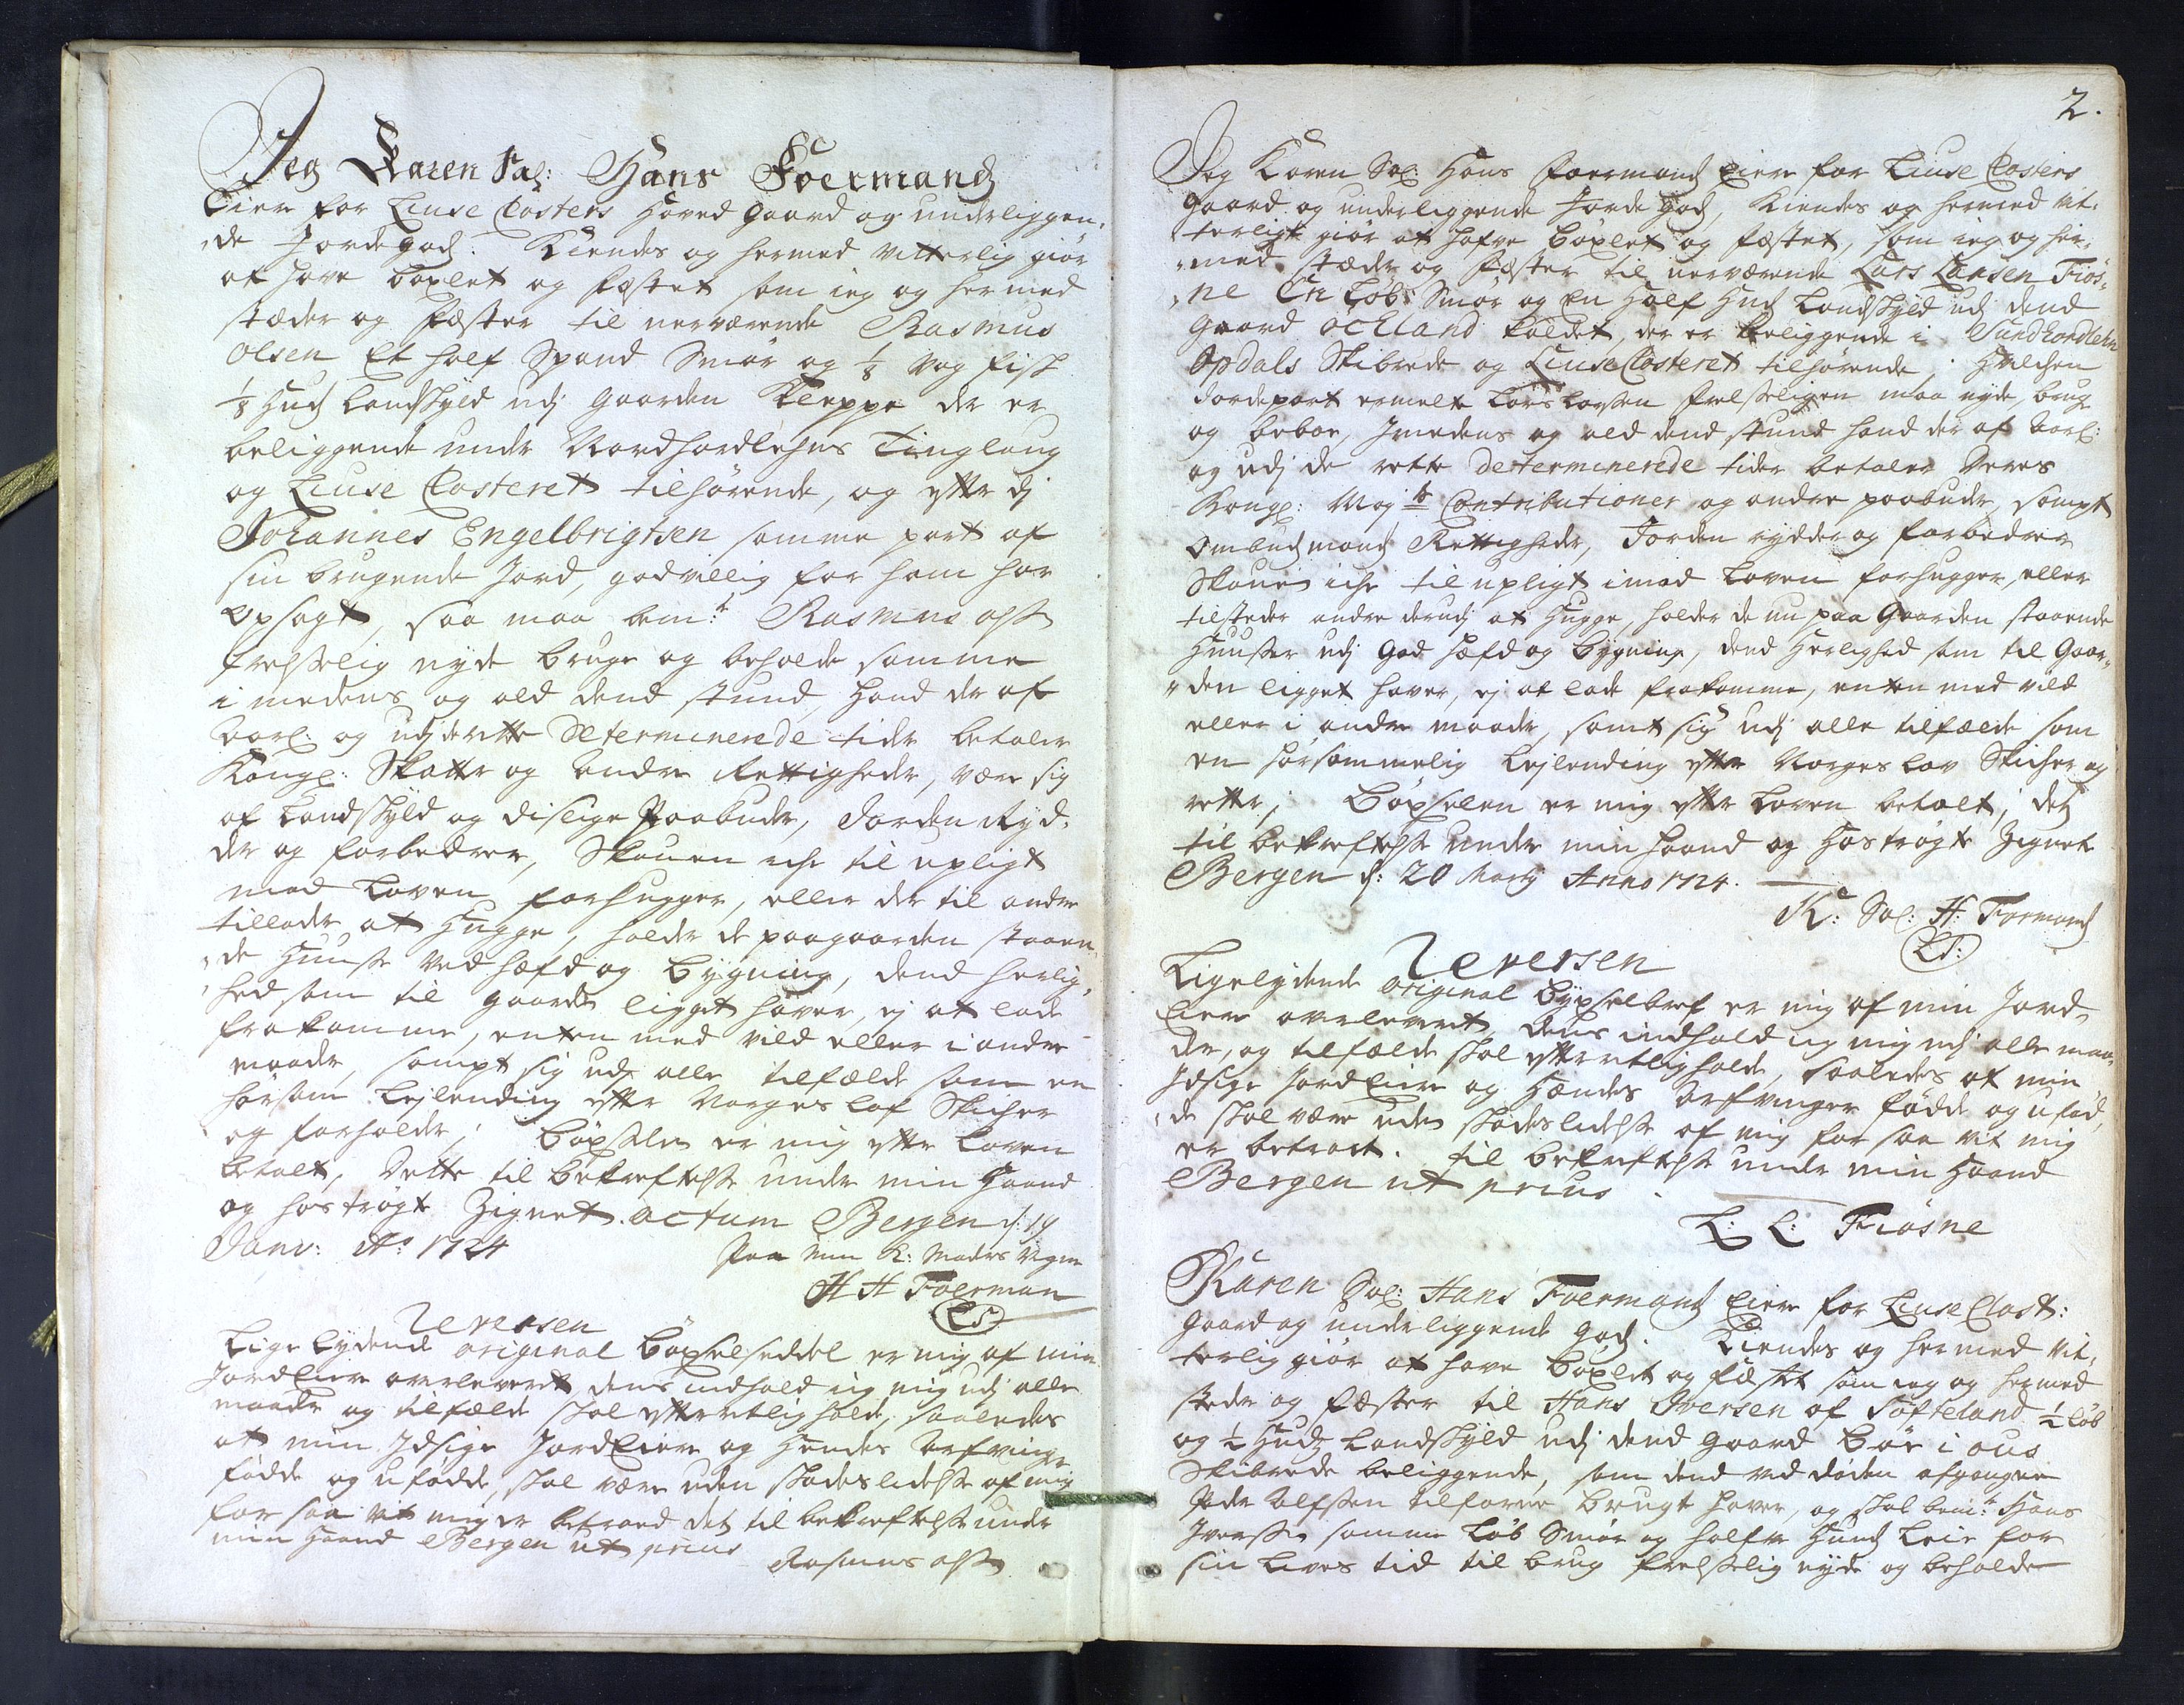 Jeg Karen Sal: Hans Foermand
Eiere for Liuse Closters Hoved Gaard og underliggen-
de Jordegods. Kiendes og hermed vitterlig giør
at have böxlet og fæstet som ieg og hermed
stæder og fæster til nerværende Rasmus
Olsen Et half Spand Smør og 1/8 Vog fisk
1/8 Hud Landskyld udj Gaarden Kleppe der er
beliggende under Nordhordlehns Tinglaug
og Liuse Closteret tilhørende, og efter dj
Johannes Engelbrigtsen samme part af
sin brugende Jord, godvillig for ham har
opsagt, saa maa bem:te Rasmus Olss:
frelsselig nyde bruge og beholde samme
i medens og ald dend stund, hand der af
aarl: og udj de rette determinerede tider betaler
Kongl: Skatter og andre Rettigheder, være sig
af Landskyld og dislige Paabuder, Jorden Ryd-
der og forbedrer, Skouen iche til upligt
mod Loven forhugger, eller der til andre
tillader at Hugge, holder de paagaarden staaen-
de Huusse ved hæfd og bygning, dend herlig-
hed som til gaarden ligget haver, ej at lade
frakomme, enten med vild eller i andre
maader, sampt sig udj alle tilfælde som en
hørsom Lejlending efter Norges Lof Skicher
og forholder; böxselen er mig efter Loven
betalt, Dette til bekreftelsse under min Haand
og hostrøgte Zignet. actum Bergen d: 19
Janv: Ao 1724
Paa min K: Moders Vegne
H H Foerman
LS
Reversen
Lige lydende original böxselseddel er mig af min
JordEiere overleveret, dens indhold ieg mig udj alle
maader og tilfælde skal efterretlig holde, saaledes
at min Idsige JordEiere og Hendes Arfvinger
fødde og ufødde, skal være uden skadeslidelsse af mig
for saa vit mig er betroed det til bekreftelsse under
min Haand Bergen ut prius
Rasmus Olss:
2.
Jeg Karen Sal: Hans Foermand Eiere for Liuse Closters
Gaard og underliggende Jorde Gods, Kiendes og hermed vit-
terligt giør at hafve böxlet og fæstet, som ieg og her-
med stæder og fæster til nerværende Lars Larsen Fiøs-
ne En Løb: Smør og En Half Hud Landskyld udj dend
Gaard ockland kaldet, der er beliggende i Sundhordlehn
Opdals Skibrede og Liuse Closteret tilhørende; Hvilchen
Jordepart ermelte Lars Larssen frelsseligen maa nyde, bruge
og beboe, Imedens og ald dend stund hand der af aarl:
og udj de rette determinerede tider betaler Deres
Kongl: Maj:ts Contributioner og andre paabuder, sampt
Ombudsmands Rettigheder, Jorden rydder og forbedrer
Skouen iche til upligt imod Loven forhugger eller
tilsteder andre derudj at Hugge, holder de nu paa Gaarden staaende
Huusser udj God Hæfd og bygning, dend Herlighed som til Gaar-
den ligget haver, ej at lade frakomme, enten med vild
eller i andre maader, samt sig udj alle tilfælde som
en hørsommelig Lejlending efter Norges Lov Skicher og
retter; böxselen er mig efter Loven betalt; det
til bekreftelsse under min haand og hostrøgte Zignet
Bergen d: 20 Martj Anno 1724.
K: Sal: H: Formand
LS:
Reversen
Ligelydende original böxselbref er mig af min Jord-
Eiere overleveret, dens indhold ieg mig udj alle maa-
der, og tilfælde skal efterretlig holde, saaledes at min
Idsige JordEiere og Hændes Arfvinger fødde og ufød-
de skal være uden skadeslidelsse af mig for saa vit mig
er betroet. til bekreftelsse under min Haand
Bergen ut prius
L: L: Fiøsne
Karen Sal: Hans Foermand Eiere for Liuse Clost:
Gaard og underliggende Gods. Kiendes og hermed vit-
terlig giør at have böxlet og fæstet som ieg og hermed
steder og fæster til Hans Iversen af Søfteland 1/2 Løb
og 1/2 Huds Landskyld udj dend Gaard Bøe i ous
Skibrede beliggende, som dend ved døden afgangne
Peder Alfssen tilforne brugt haver, og skal bem:te Hans
Iverssen samme Løb Smør og halfve Huuds Leie for
sin Lives tid til brug frelsselig nyde og beholde